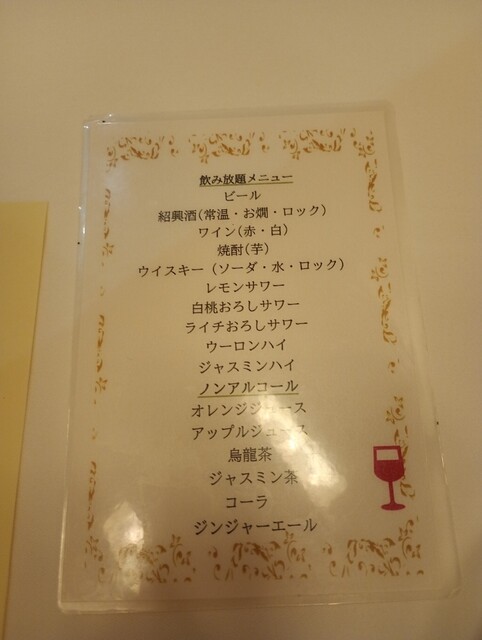 飲み放題メニュー
ビール
紹興酒(常温・お燗・ロック)
ワイン(赤・白)
焼酎(芋)
ウイスキー (ソーダ・水・ロック)
レモンサワー
白桃おろしサワー
ライチおろしサワー
ウーロンハイ
ジャスミンハイ
ノンアルコール
オレンジジュース
アップルジュース
烏龍茶
ジャスミン茶
コーラ
ジンジャーエール